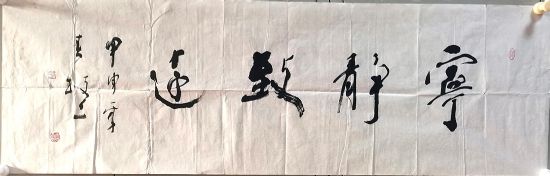 寧靜致遠
甲申年
春